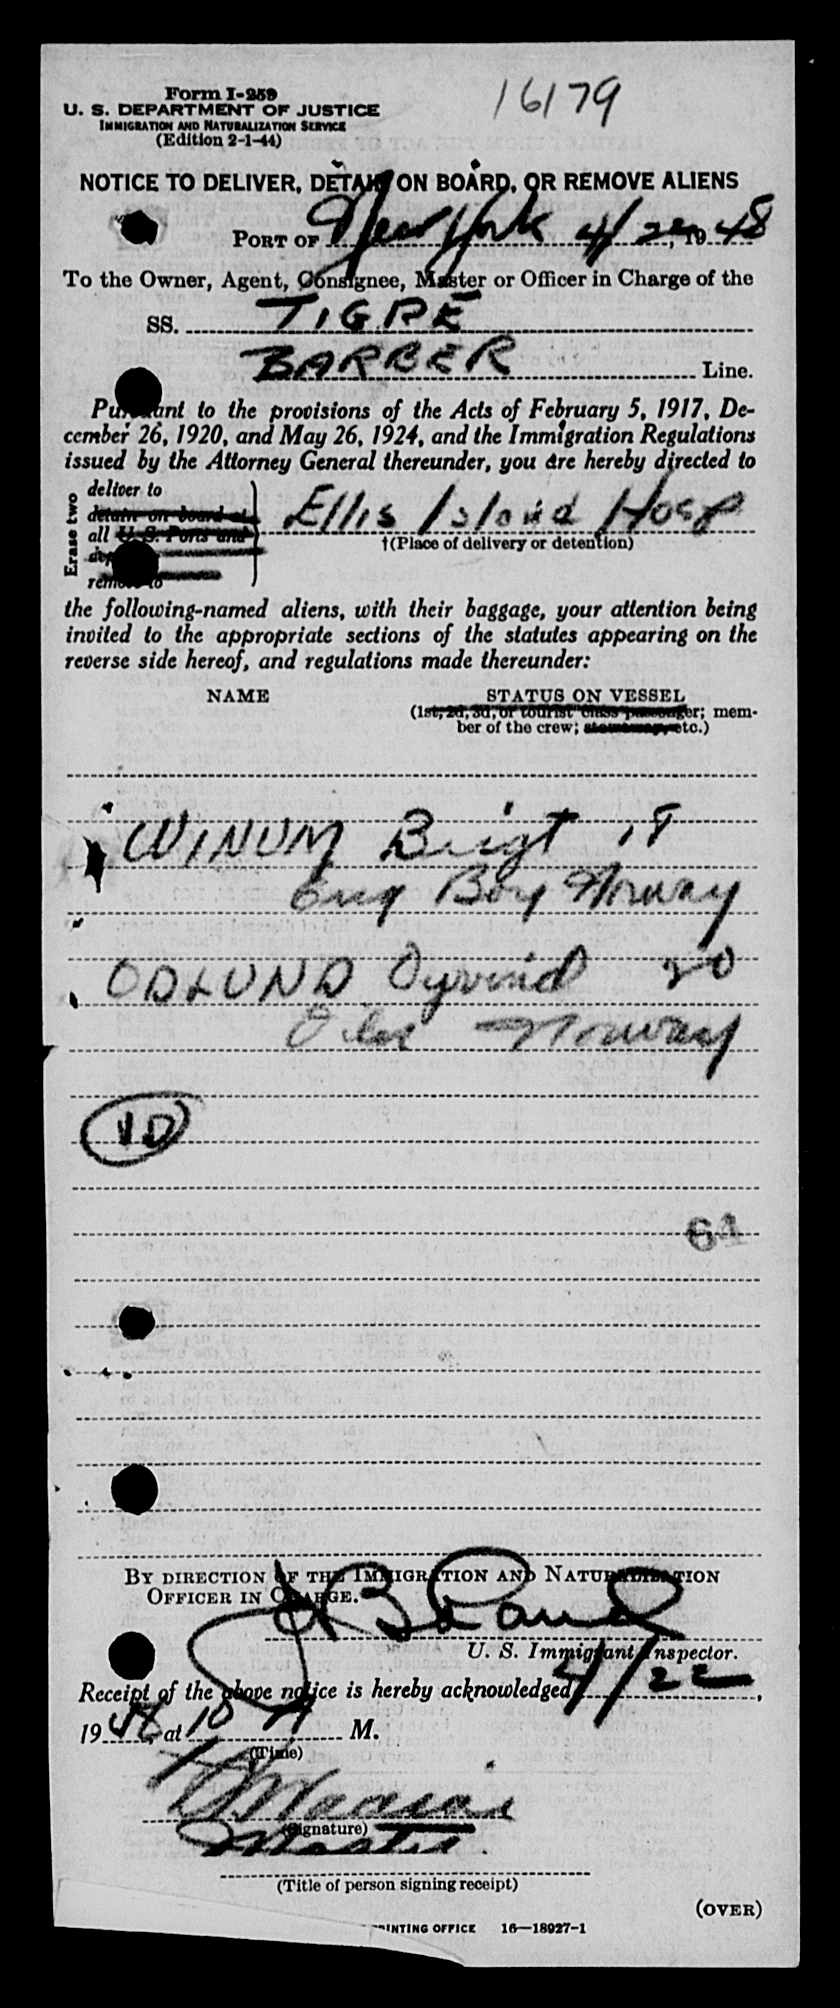 Form I-259
16179
U. S. DEPARTMENT OF JUSTICE
IMMIGRATION AND NATURALIZATION SERVICE
(Edition 2-1-44)
NOTICE TO DELIVER, DETAIN ON BOARD, OR REMOVE ALIENS
PORT OF New York 4/22, 1948
To the Owner, Agent, Consignee, Master or Officer in Charge of the
SS. TIGRE
BARBER Line.
Pursuant to the provisions of the Acts of February 5, 1917, De-
cember 26, 1920, and May 26, 1924, and the Immigration Regulations
issued by the Attorney General thereunder, you are hereby directed to
Erase two
deliver to
detain on board at
all U. S. Ports and
remove to
Ellis Island Hosp
†(Place of delivery or detention)
the following-named aliens, with their baggage, your attention being
invited to the appropriate sections of the statutes appearing on the
reverse side hereof, and regulations made thereunder:
NAME STATUS ON VESSEL
(1st, 2d, 3d, or tourist class passenger; mem-
ber of the crew; stowaway, etc.)
WINUM Birgt 18
Eng Boy Norway
ODLUND Oyvind 20
Oiler Norway
10
64
BY DIRECTION OF THE IMMIGRATION AND NATURALIZATION
OFFICER IN CHARGE.
U. S. Immigrant Inspector.
Receipt of the above notice is hereby acknowledged 4/22,
1948, at 10 A M.
(Time)
(Signature)
Master
(Title of person signing receipt)
(OVER)
PRINTING OFFICE 16—18927-1